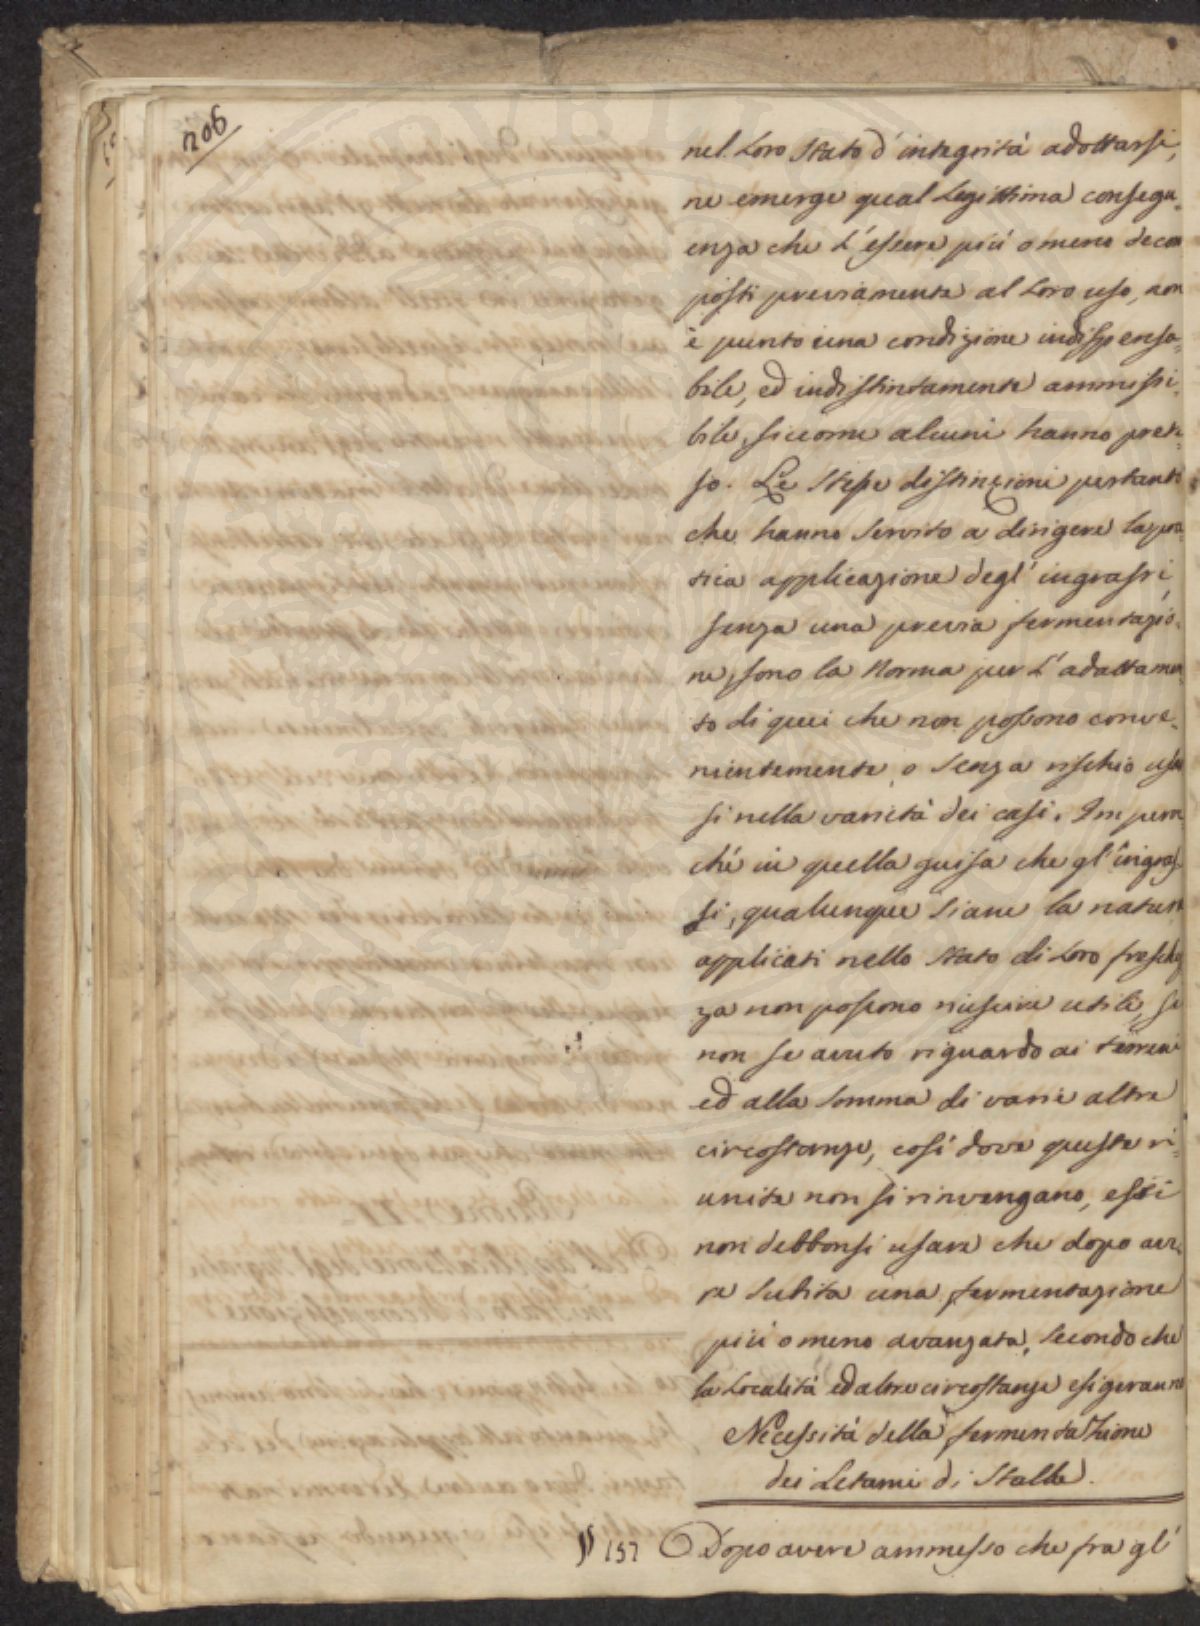 206
nel Loro Stato d'integrità adottarsi,
ne emerge qual Legittima consegu-
enza che L'essere più o meno decom
posti previamente al Loro uso, non
è punto una condizione indispensa-
bile, ed indistintamente ammissi-
bile, siccome alcuni hanno prete-
so. Le Stesse distinzioni pertanto
che hanno Servito a dirigere la pra-
tica applicazione degl'ingrassi,
senza una previa fermentazio-
ne, sono la Norma per L'adattamen
to di quei che non possono conve-
nientemente, o Senza rischio usar
si nella varietà dei casi. Imperoc
ché in quella guisa che gl'ingras-
si, qualunque Siane la natura
applicati nello Stato di Loro freschez
za non possono riuscire utili, se
non se avuto riguardo ai terreni
ed alla Somma di varie altre
circostanze, così dove queste ri-
unite non si rinvengano, essi
non debbonsi usare che dopo ave-
re Subita una fermentazione
più o meno avanzata, Secondo che
la Località ed altre circostanze esigeranno
Necessità della fermentaZione
dei Letami di Stalla.
§ 157 Dopo avere ammesso che fra gl'